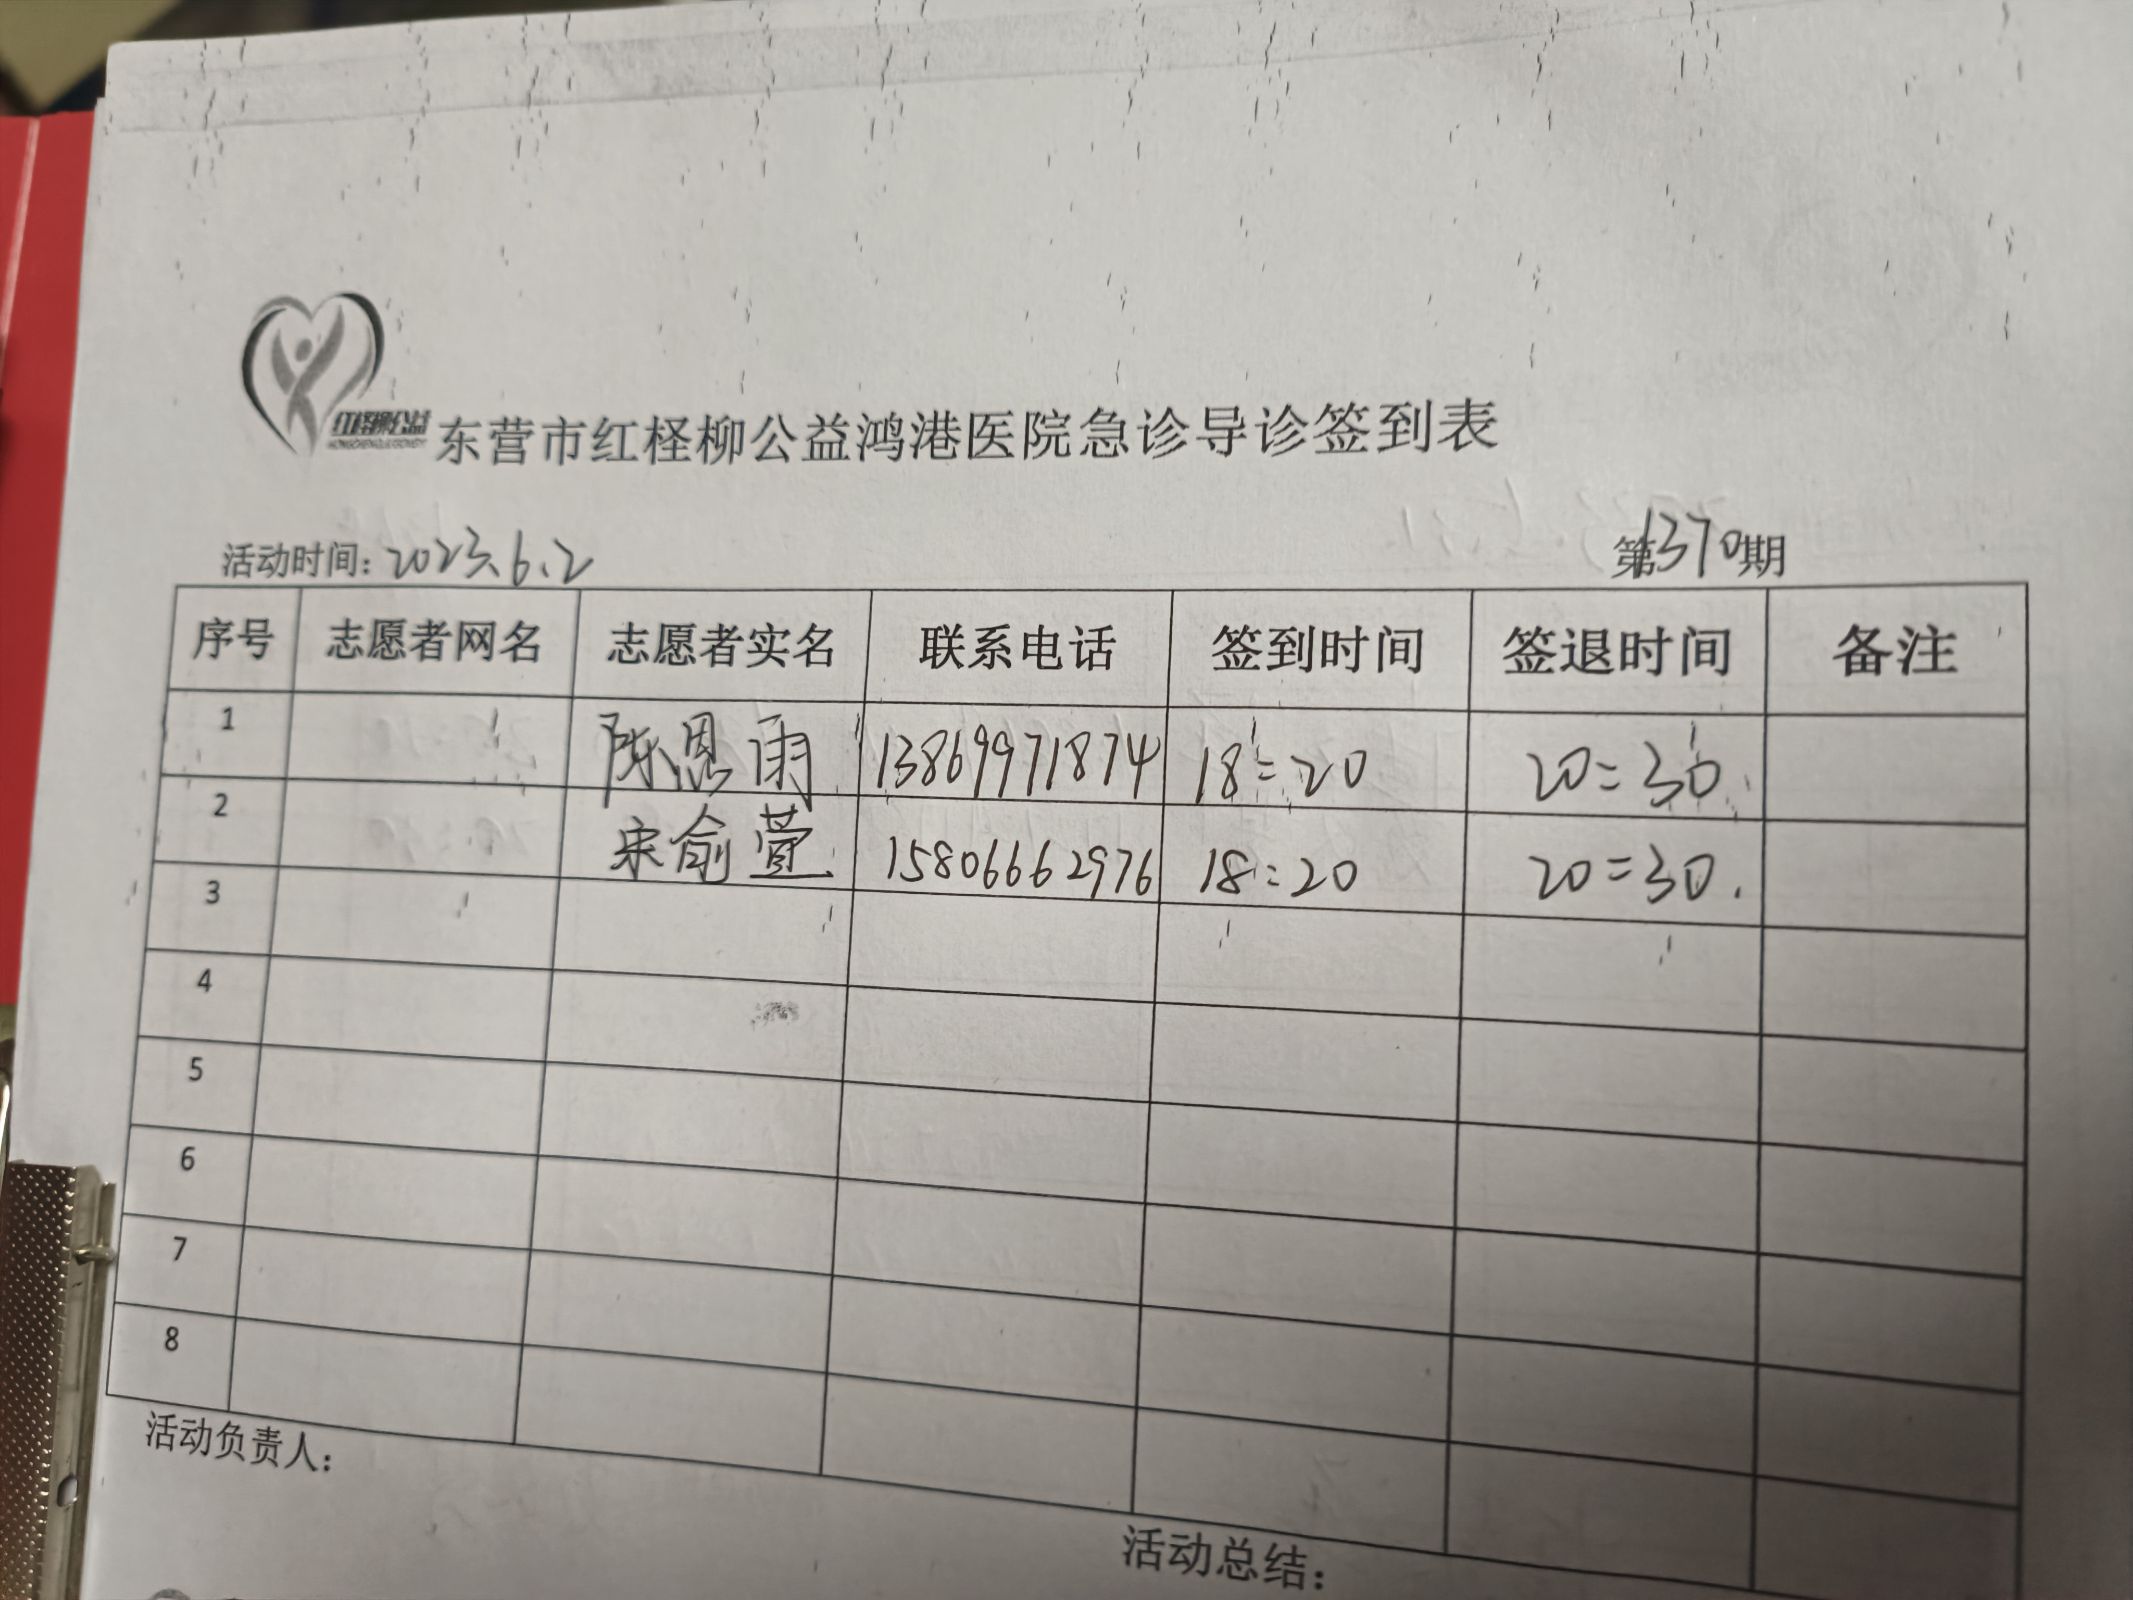 红柽柳公益
东营市红柽柳公益鸿港医院急诊导诊签到表
活动时间：2023.6.2 第1370期
序号 志愿者网名 志愿者实名 联系电话 签到时间 签退时间 备注
1 陈恩雨 13869971874 18:20 20:30
2 宋俞萱 15806662976 18:20 20:30.
3
4
5
6
7
8
活动负责人：
活动总结：